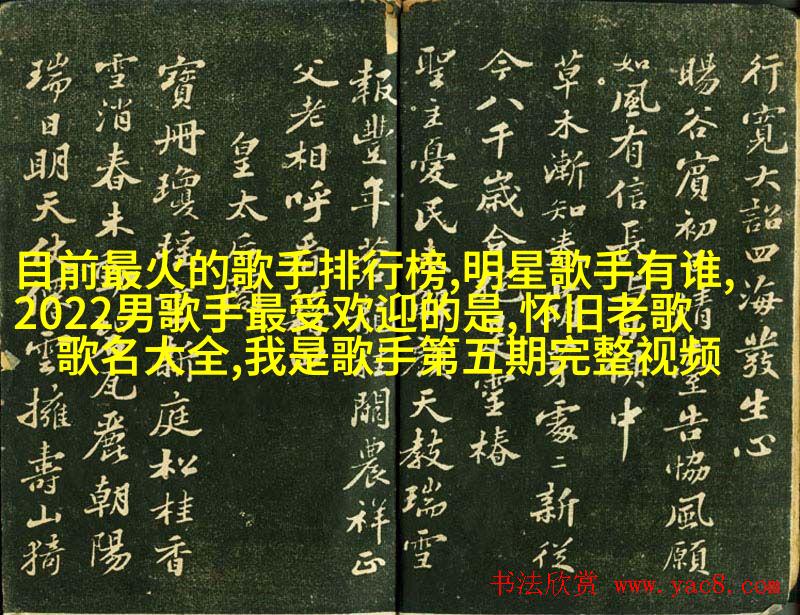 行寬大詔四海發生心
暘谷賓初告協風願
如風有信長中
草木漸知處〻新從
今八千歲靈椿
聖主憂民天教瑞雪
報豐年闢農祥正
父老相呼
皇太
寶冊瓊庭松桂香
雪消春未麗朝陽
瑞日明天雲擁壽山猗
目前最火的歌手排行榜,明星歌手有谁,
2022男歌手最受欢迎的是,怀旧老歌
歌名大全,我是歌手第五期完整视频
书法欣赏 www.yac8.com